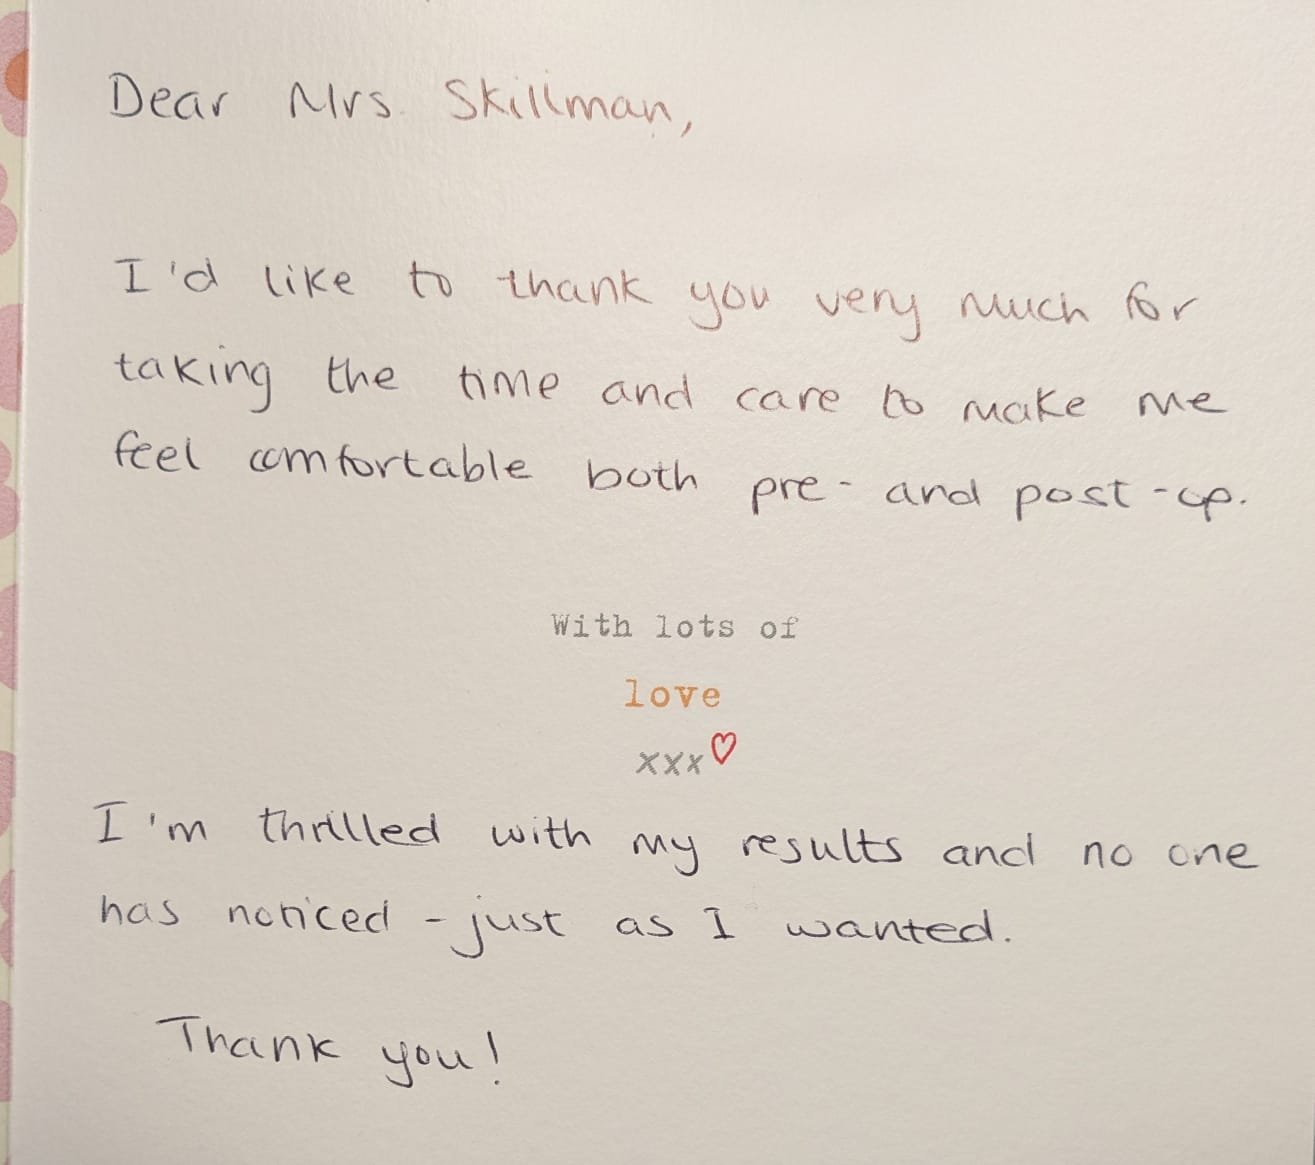 Dear Mrs. Skillman,
I'd like to thank you very much for
taking the time and care to make me
feel comfortable both pre- and post-op.
With lots of
love
xxx♡
I'm thrilled with my results and no one
has noticed - just as I wanted.
Thank you!